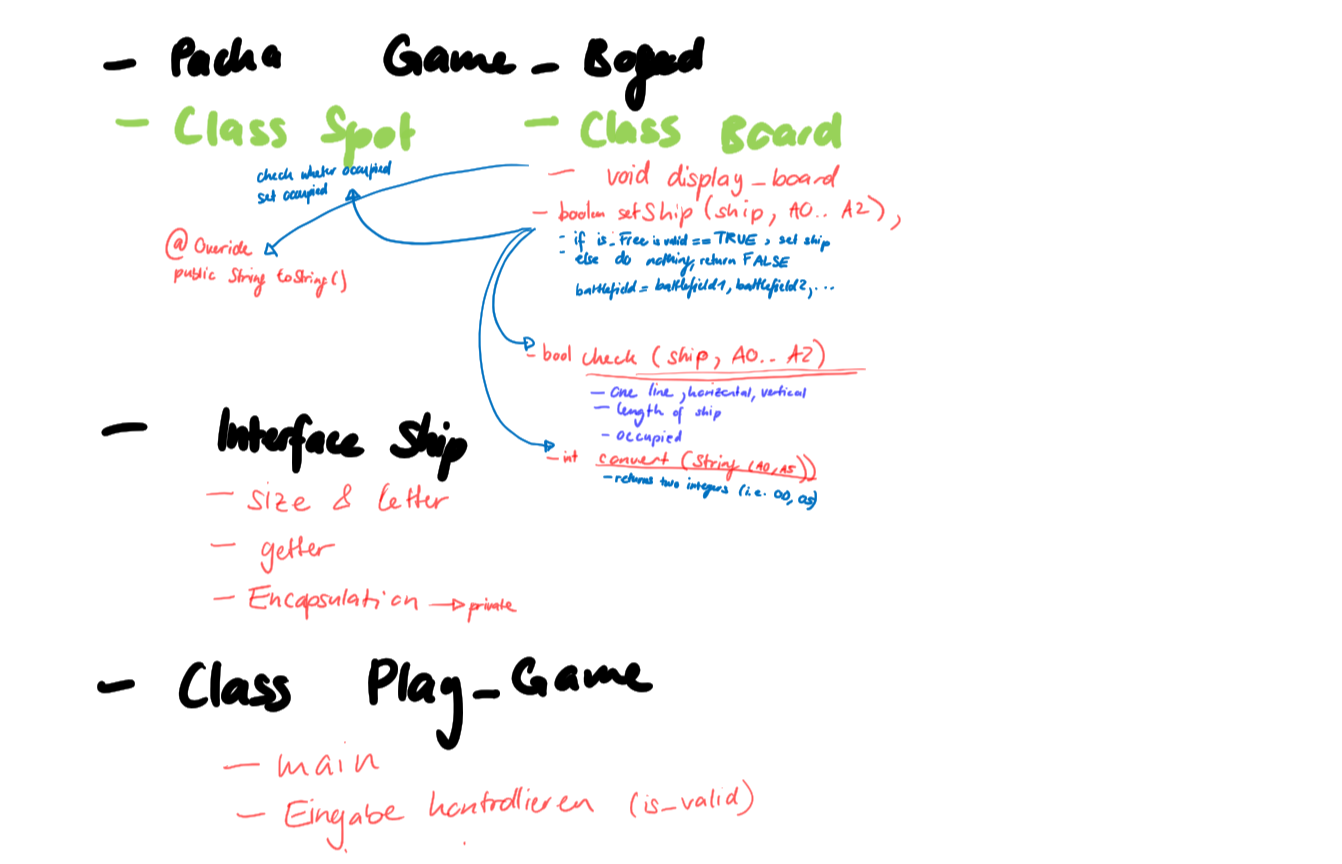 - Pacha Game_Board
- Class Spot
check wheter occupied
set occupied
@Override
public String toString()
- Class Board
- void display_board
- boolen setShip (ship, A0.. A2),
- if is_Free is valid == TRUE, set ship
- else do nothing, return FALSE
battlefield = battlefield1, battlefield2, ...
- bool check (ship, A0.. A2)
- one line, horizontal, vertical
- length of ship
- occupied
- int convert (String (A0, A5))
- returns two integers (i.e. 00, 05)
- Interface Ship
- size & letter
- getter
- Encapsulation → private
- Class Play_Game
- main
- Eingabe kontrollieren (is_valid)